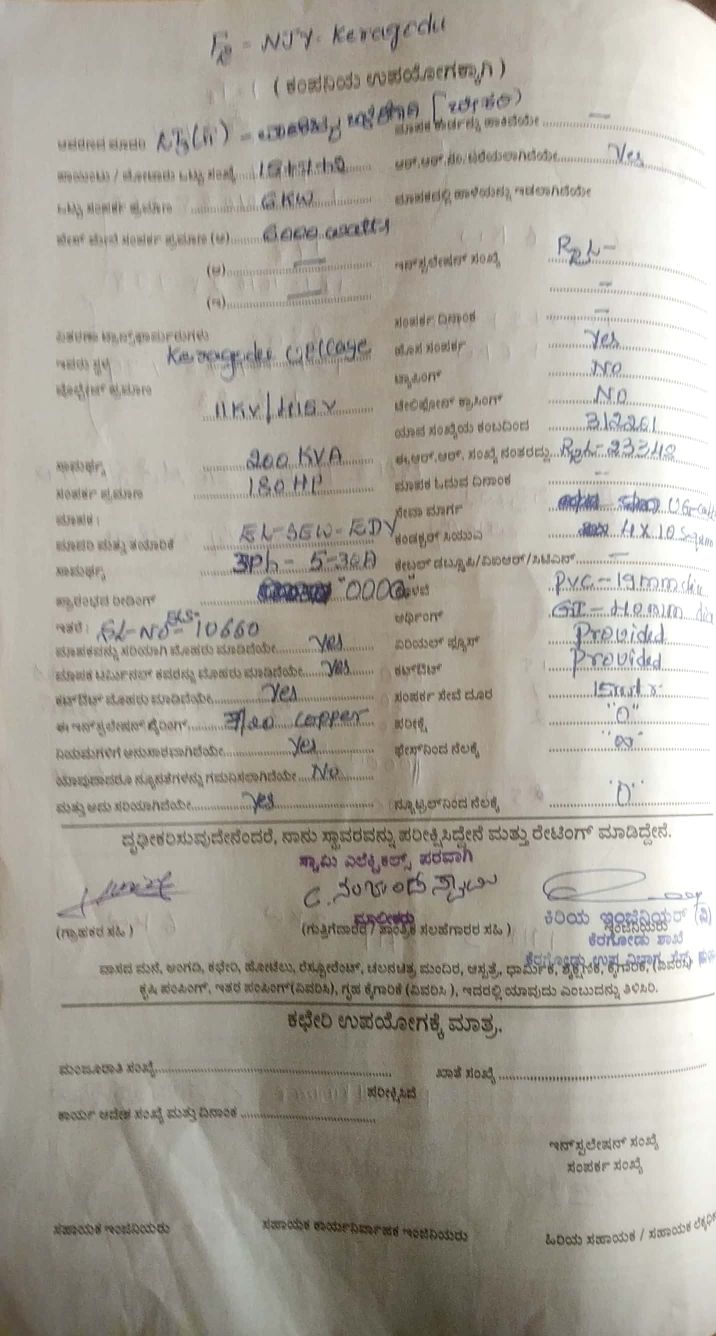 F2 - NJY - Keragodu
( ಕಂಪನಿಯ ಉಪಯೋಗಕ್ಕಾಗಿ )
ಮಾಪಕ ಕಾರ್ಡನ್ನು ಹಾಕಿದೆಯೇ —
ಆರ್.ಆರ್.ನಂ. ಬರೆಯಲಾಗಿದೆಯೇ Yes
ಒಟ್ಟು ಸಂಪರ್ಕ ಪ್ರಮಾಣ 6KW ಮಾಪಕದಲ್ಲಿ ಹಾಳೆಯನ್ನು ಇಡಲಾಗಿದೆಯೇ
6000 watts
(ಆ) — ಇನ್‌ಸ್ಟಲೇಷನ್ ಸಂಖ್ಯೆ R2L-
(ಇ) — –
ಸಂಪರ್ಕ ದಿನಾಂಕ –
ವಿತರಣಾ ಟ್ರಾನ್ಸ್‌ಫಾರ್ಮರುಗಳು
ಇದರು ಸ್ಥಳ Keragodu village ಹೊಸ ಸಂಪರ್ಕ Yes
ವೊಲ್ಟೇಜ್ ಪ್ರಮಾಣ ಟ್ಯಾಪಿಂಗ್ NO
11KV/415V ಟೆಲಿಫೋನ್ ಕ್ರಾಸಿಂಗ್ NO
ಯಾವ ಸಂಖ್ಯೆಯ ಕಂಬದಿಂದ 312261
ಸಾಮರ್ಥ್ಯ 200 KVA ಈ.ಆರ್.ಆರ್. ಸಂಖ್ಯೆ ನಂತರದ್ದು R2L-23342
ಸಂಪರ್ಕ ಪ್ರಮಾಣ 180 HP ಮಾಪಕ ಓದುವ ದಿನಾಂಕ –
ಮಾಪಕ : ಸೇವಾ ಮಾರ್ಗ
ಮಾದರಿ ಮತ್ತು ತಯಾರಿಕೆ EL-SEW-EDV ಕಂಡಕ್ಟರ್ ಸಿಯುಎ 4X10
ಸಾಮರ್ಥ್ಯ 3Ph - 5-30A ಕೇಬಲ್ ಡಬ್ಲೂಪಿ/ವಿಐಆರ್/ಸಿಟಿಎಸ್ —
ಪ್ರಾರಂಭದ ರೀಡಿಂಗ್ "0000" PVC-19mm dia
ಇತರೆ : SL-NO- 10660 ಆರ್ಥಿಂಗ್ GI-40mm dia
ಮಾಪಕವನ್ನು ಸರಿಯಾಗಿ ಮೊಹರು ಮಾಡಿದೆಯೇ Yes ಏರಿಯಲ್ ಫ್ಯೂಸ್ Provided
ಮಾಪಕ ಟರ್ಮಿನಲ್ ಕವರನ್ನು ಮೊಹರು ಮಾಡಿದೆಯೇ Yes ಕಟ್‌ಔಟ್ Provided
ಕಟ್‌ಔಟ್ ಮೊಹರು ಮಾಡಿದೆಯೇ Yes ಸಂಪರ್ಕ ಸೇವೆ ದೂರ 15mtr
ಈ ಇನ್‌ಸ್ಟಲೇಷನ್ ವೈರಿಂಗ್ 7/20 copper ಪರೀಕ್ಷೆ "0"
ನಿಯಮಗಳಿಗೆ ಅನುಸಾರವಾಗಿದೆಯೇ Yes ಫೇಸ್‌ನಿಂದ ನೆಲಕ್ಕೆ "∞"
ಯಾವುದಾದರೂ ನ್ಯೂನತೆಗಳನ್ನು ಗಮನಿಸಲಾಗಿದೆಯೇ No
ಮತ್ತು ಅದು ಸರಿಯಾಗಿದೆಯೇ Yes ನ್ಯೂಟ್ರಲ್‌ನಿಂದ ನೆಲಕ್ಕೆ "0"
ದೃಢೀಕರಿಸುವುದೇನೆಂದರೆ, ನಾನು ಸ್ಥಾವರವನ್ನು ಪರೀಕ್ಷಿಸಿದ್ದೇನೆ ಮತ್ತು ರೇಟಿಂಗ್ ಮಾಡಿದ್ದೇನೆ.
ಸ್ವಾಮಿ ಎಲೆಕ್ಟ್ರಿಕಲ್ಸ್ ಪರವಾಗಿ
ಮಾಲೀಕರು
(ಗ್ರಾಹಕರ ಸಹಿ ) (ಗುತ್ತಿಗೆದಾರರ / ತಾಂತ್ರಿಕ ಸಲಹೆಗಾರರ ಸಹಿ ) ಕಿರಿಯ ಇಂಜಿನಿಯರ್ (ವಿ)
ಇಂಜಿನಿಯರು
ಕೆರಗೋಡು ಶಾಖೆ
ವಾಸದ ಮನೆ, ಅಂಗಡಿ, ಕಛೇರಿ, ಹೋಟೆಲು, ರೆಸ್ಟೋರೆಂಟ್, ಚಲನಚಿತ್ರ ಮಂದಿರ, ಆಸ್ಪತ್ರೆ, ಧಾರ್ಮಿಕ, ಶೈಕ್ಷಣಿಕ, ಕೈಗಾರಿಕೆ, (ವಿವರಿಸಿ)
ಕೃಷಿ ಪಂಪಿಂಗ್, ಇತರ ಪಂಪಿಂಗ್(ವಿವರಿಸಿ), ಗೃಹ ಕೈಗಾರಿಕೆ (ವಿವರಿಸಿ ), ಇದರಲ್ಲಿ ಯಾವುದು ಎಂಬುದನ್ನು ತಿಳಿಸಿರಿ.
ಕಛೇರಿ ಉಪಯೋಗಕ್ಕೆ ಮಾತ್ರ.
ಮಂಜೂರಾತಿ ಸಂಖ್ಯೆ ಖಾತೆ ಸಂಖ್ಯೆ
ಪರೀಕ್ಷಿಸಿದೆ
ಕಾರ್ಯ ಆದೇಶ ಸಂಖ್ಯೆ ಮತ್ತು ದಿನಾಂಕ
ಇನ್‌ಸ್ಟಲೇಷನ್ ಸಂಖ್ಯೆ
ಸಂಪರ್ಕ ಸಂಖ್ಯೆ
ಸಹಾಯಕ ಇಂಜಿನಿಯರು ಸಹಾಯಕ ಕಾರ್ಯನಿರ್ವಾಹಕ ಇಂಜಿನಿಯರು ಹಿರಿಯ ಸಹಾಯಕ / ಸಹಾಯಕ